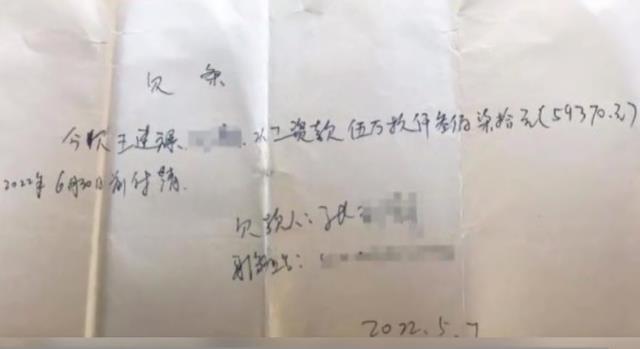 欠条
今欠王连 人工资款伍万玖仟叁佰柒拾元(59370.元)
2022年6月30日前付清.
欠款人:张
身份证:
2022.5.7